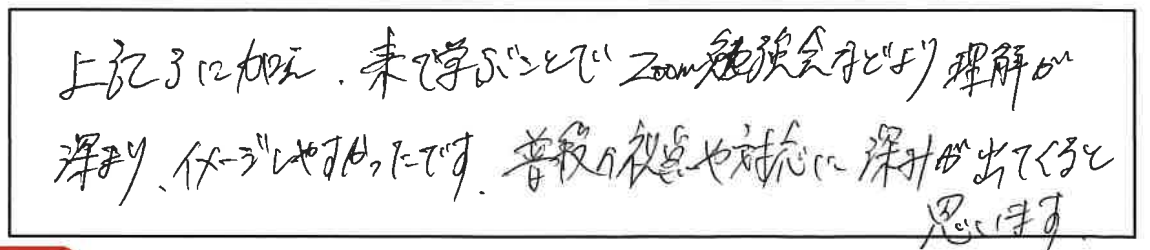 上記3に加え、来て学ぶことでZoom勉強会などより理解が
深まり、イメージしやすかったです。普段の視点や対応に深みが出てくると
思います。